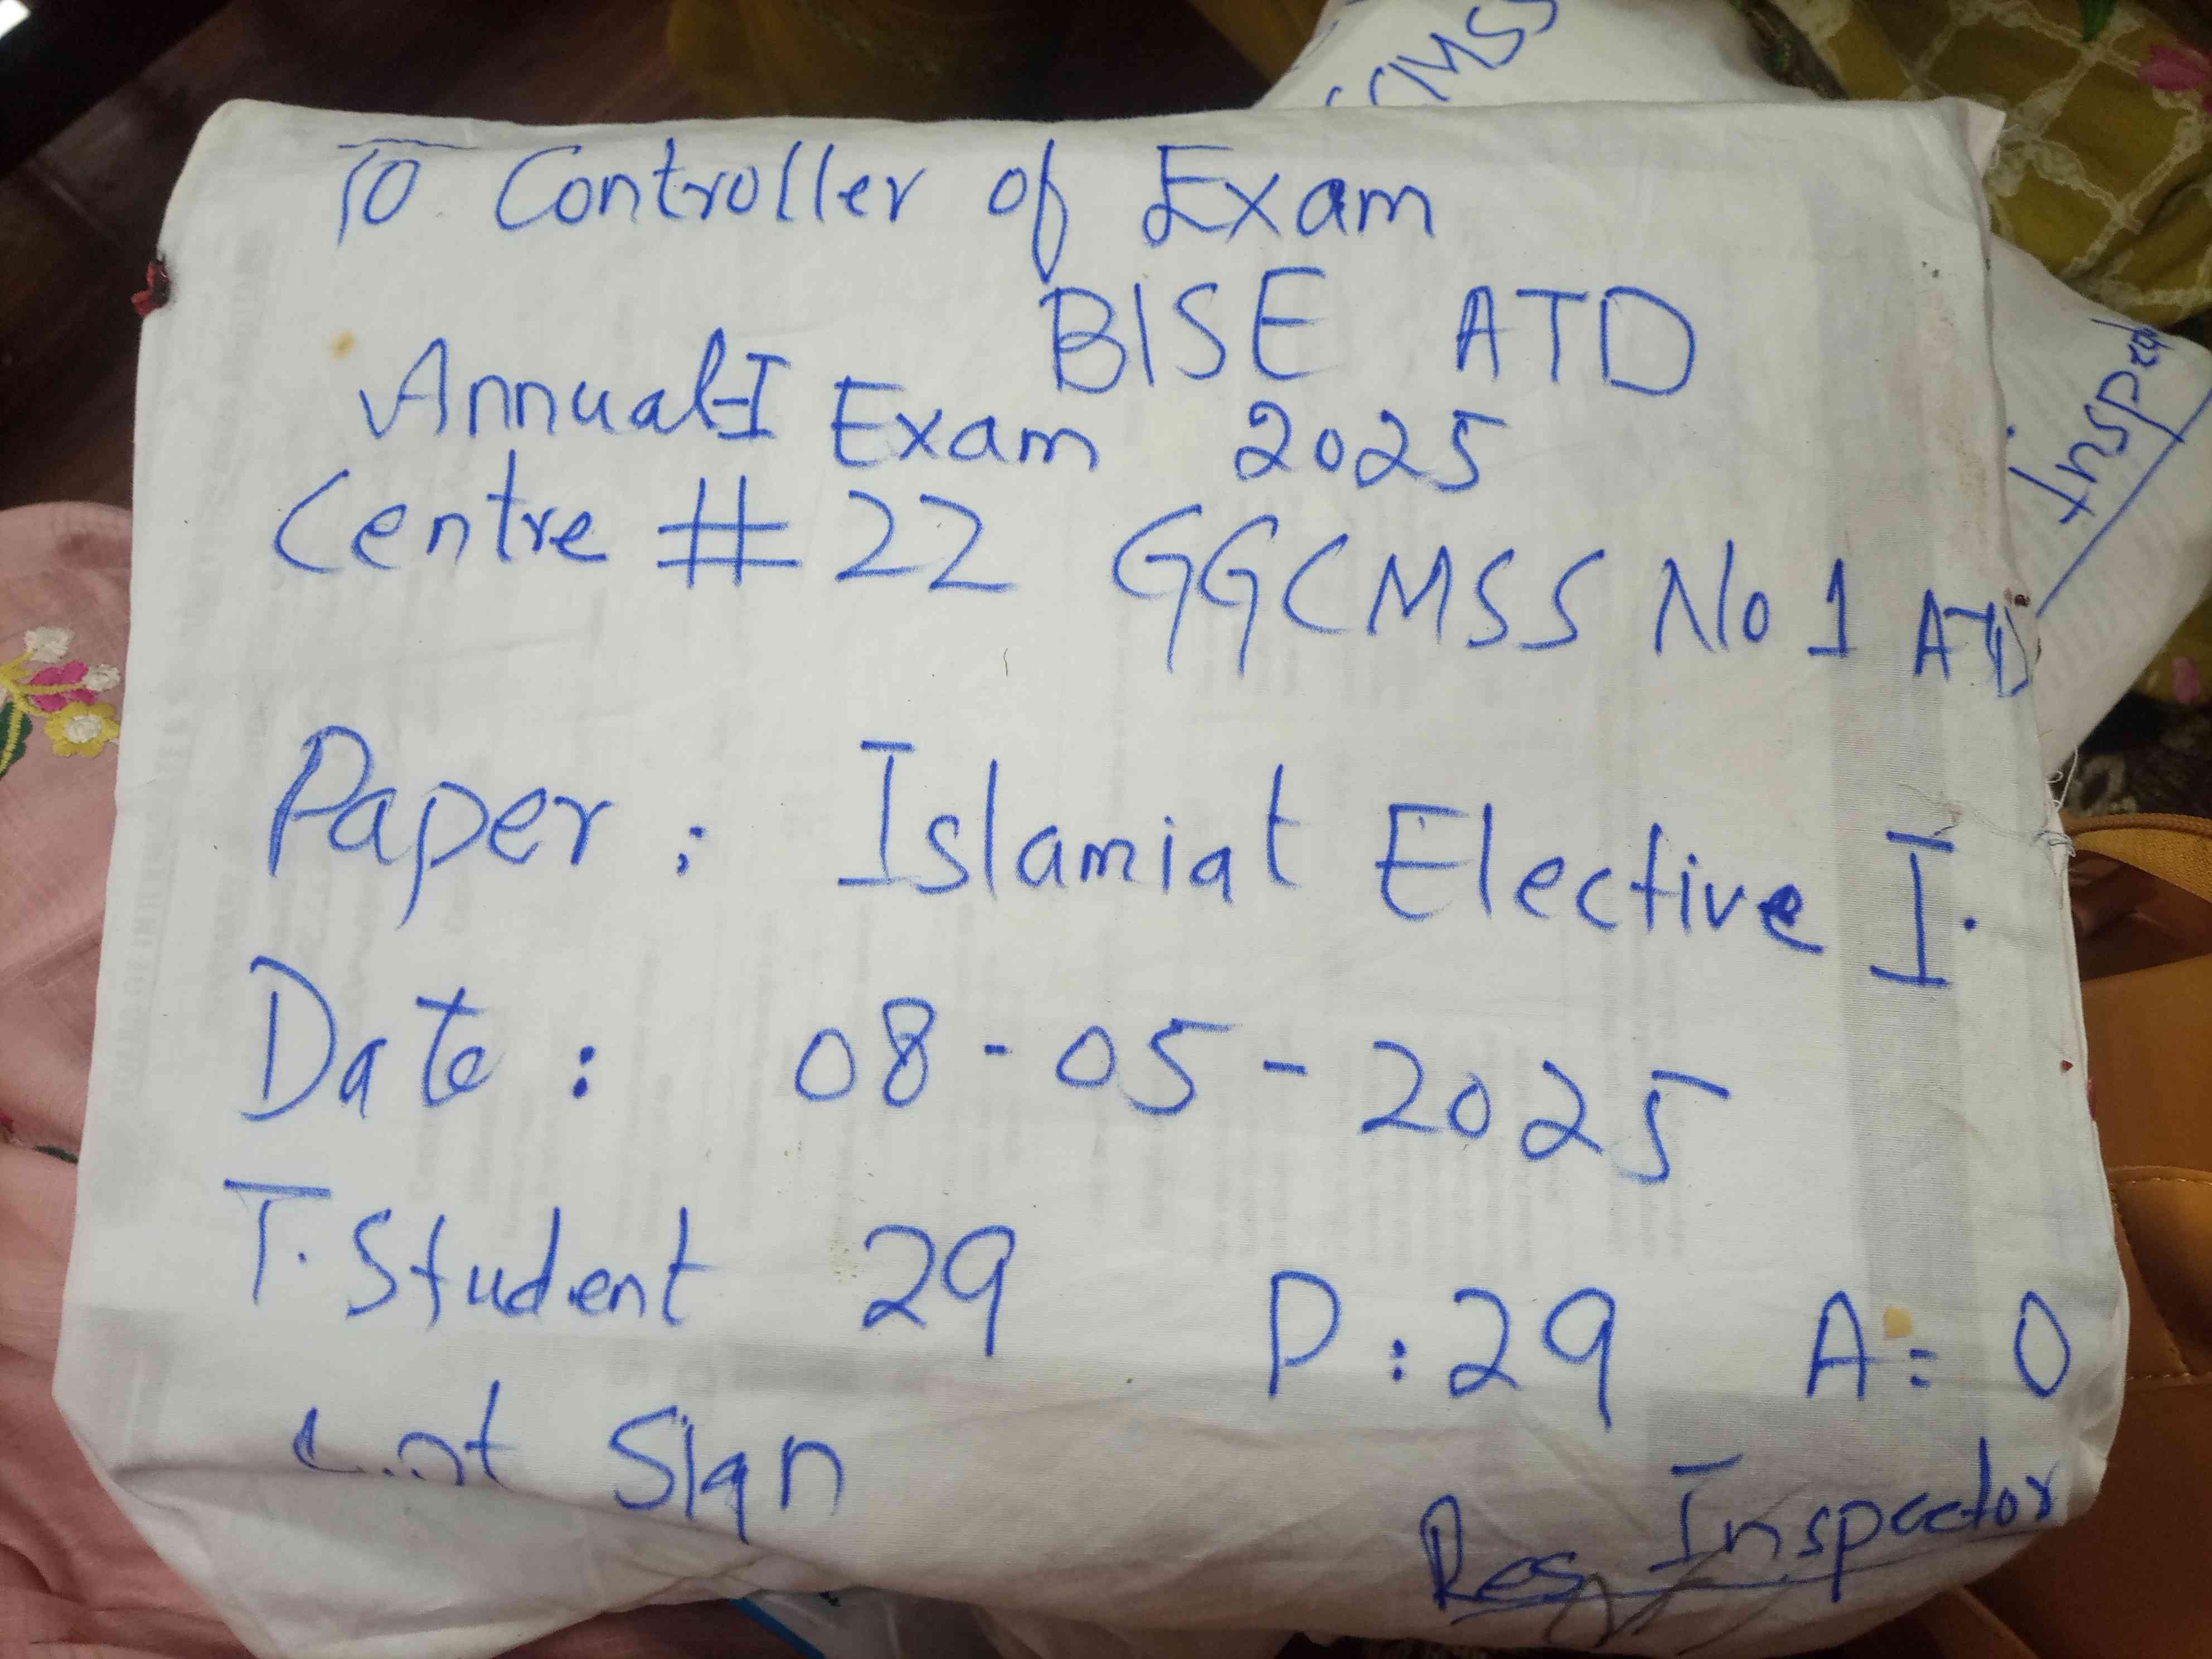 To Controller of Exam
BISE ATD
Annual-I Exam 2025
Centre # 22 GGCMSS No 1 ATD
Paper : Islamiat Elective I.
Date : 08-05-2025
T. Student 29 P : 29 A = 0
Sign
Res Inspector
CMSS
Inspect